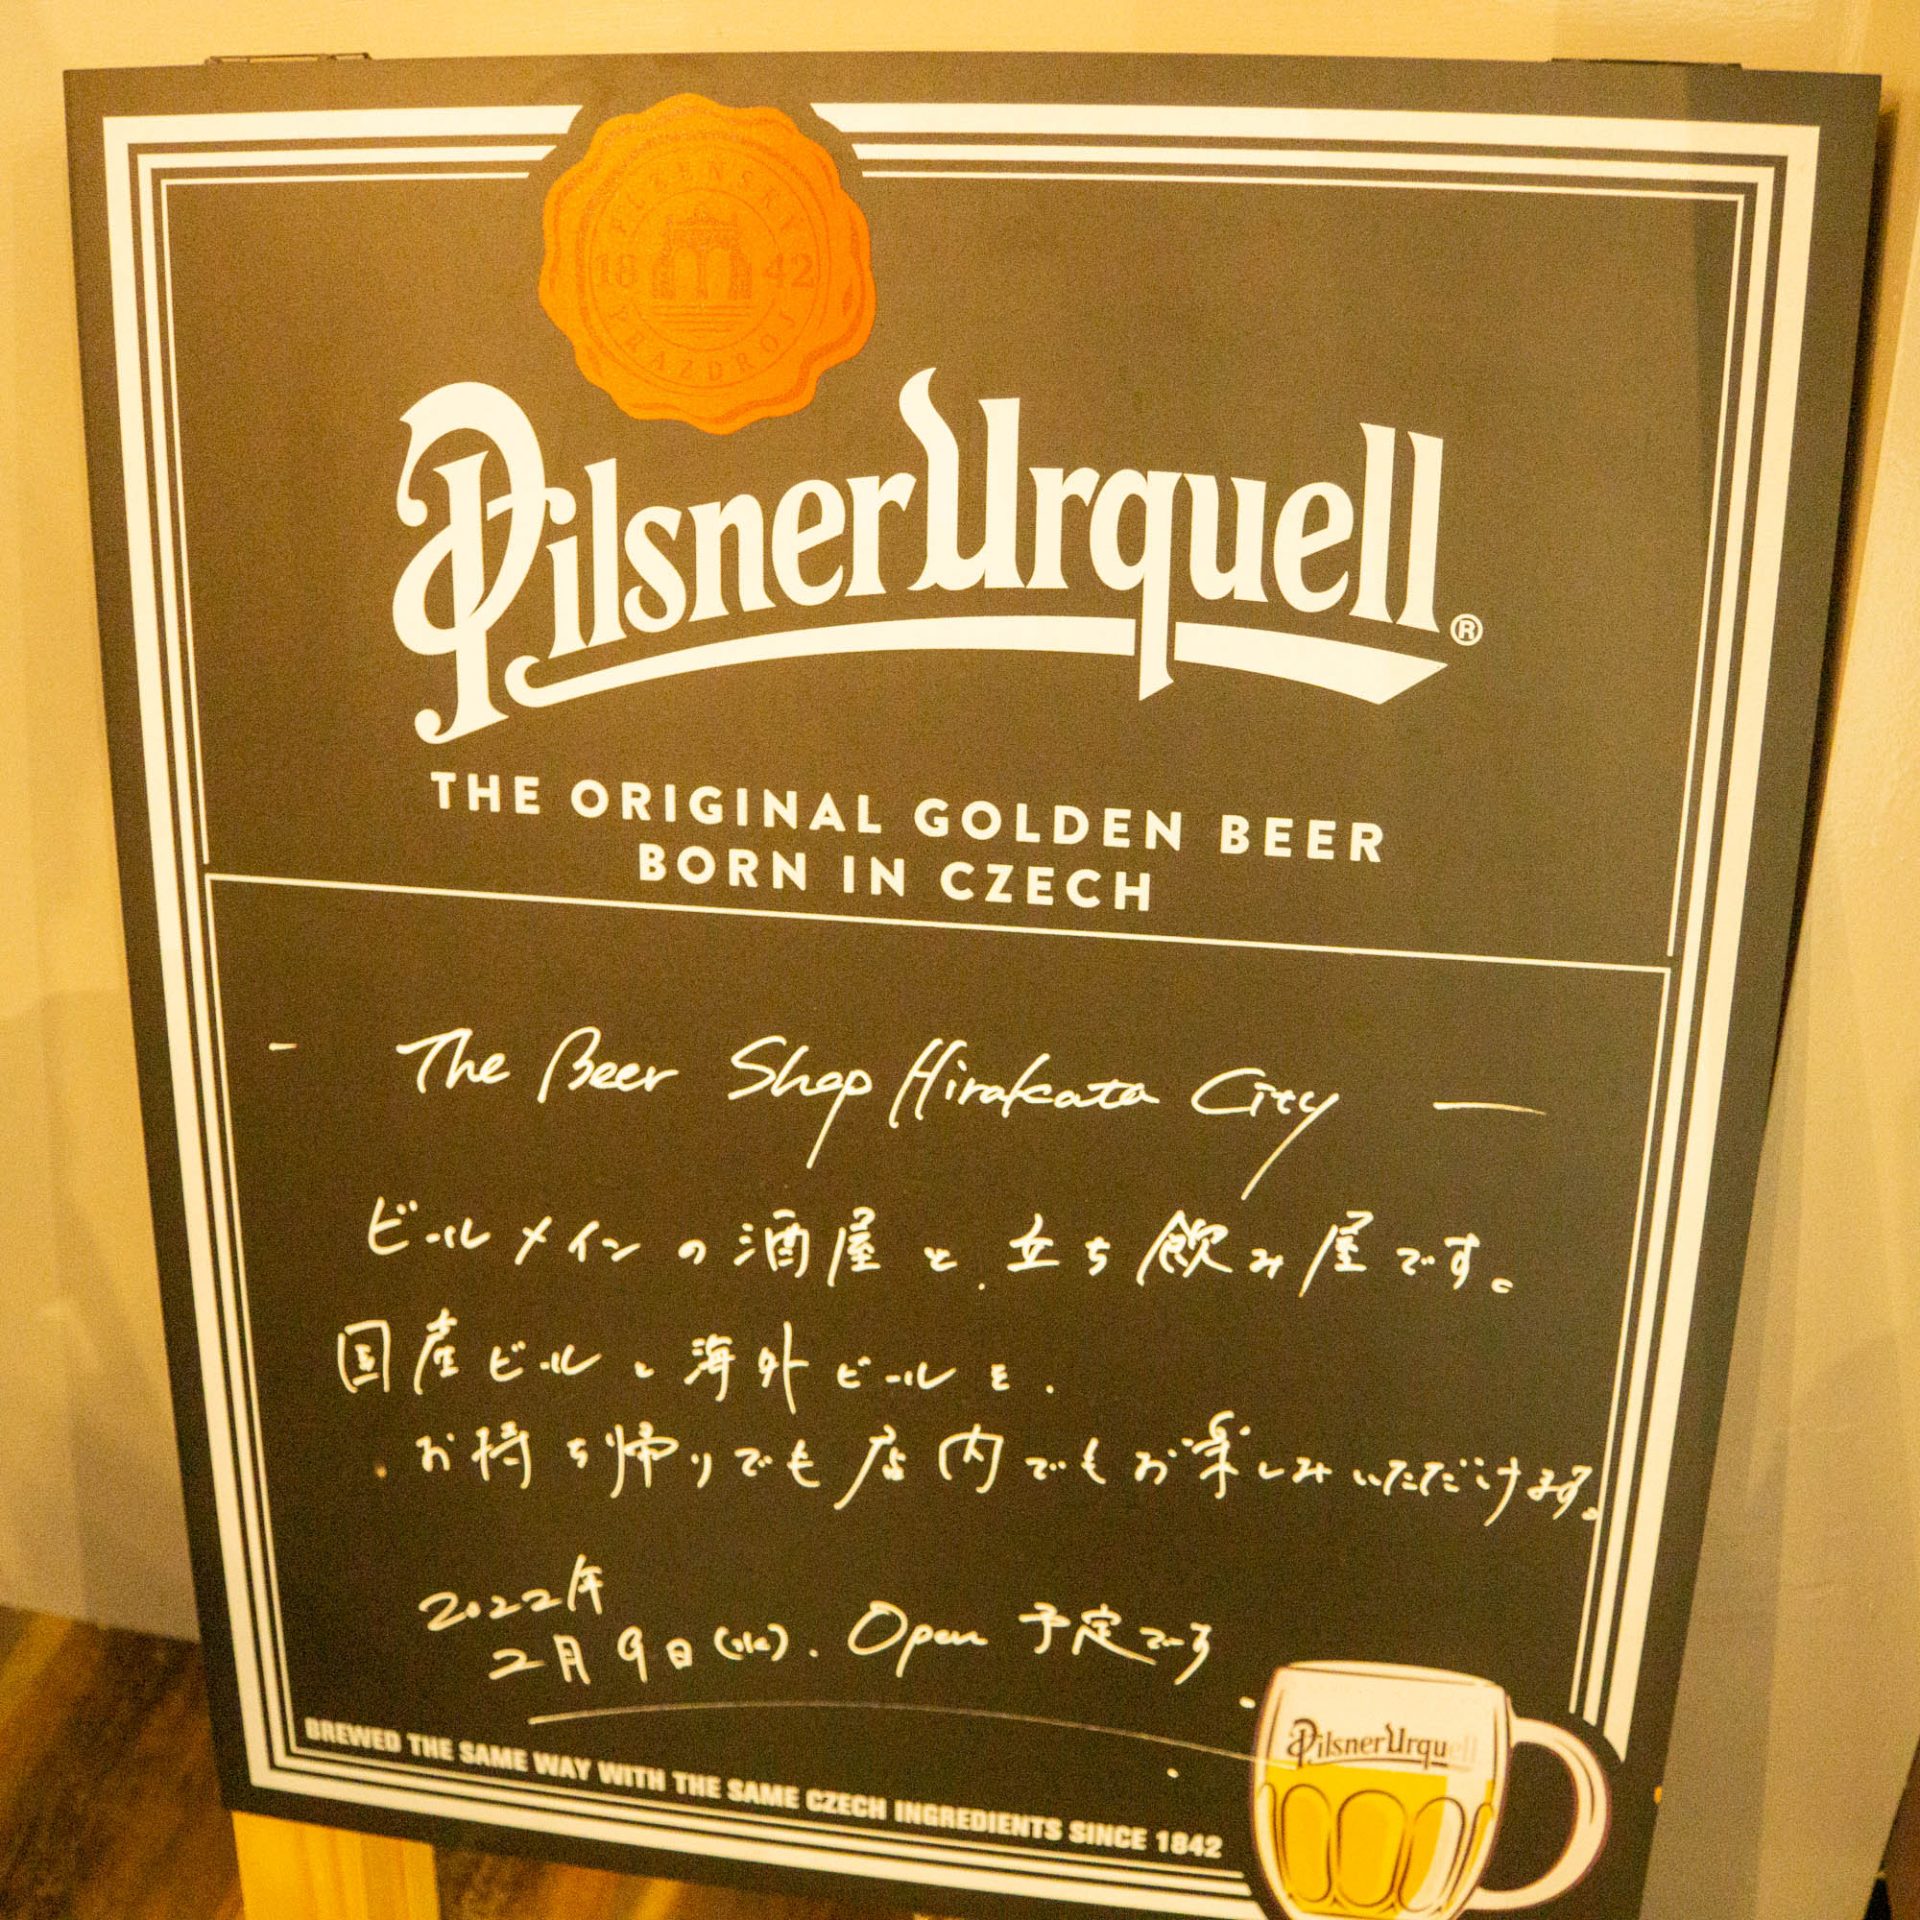 PLZEŇSKÝ
18 42
PRAZDROJ
Pilsner Urquell®
THE ORIGINAL GOLDEN BEER
BORN IN CZECH
- The Beer Shop Hirakata City -
ビールメインの酒屋と、立ち飲み屋です。
国産ビール、海外ビールを、
お持ち帰りでも店内でもお楽しみいただけます。
2022年
2月9日(水). Open 予定でーす
Pilsner Urquell
BREWED THE SAME WAY WITH THE SAME CZECH INGREDIENTS SINCE 1842